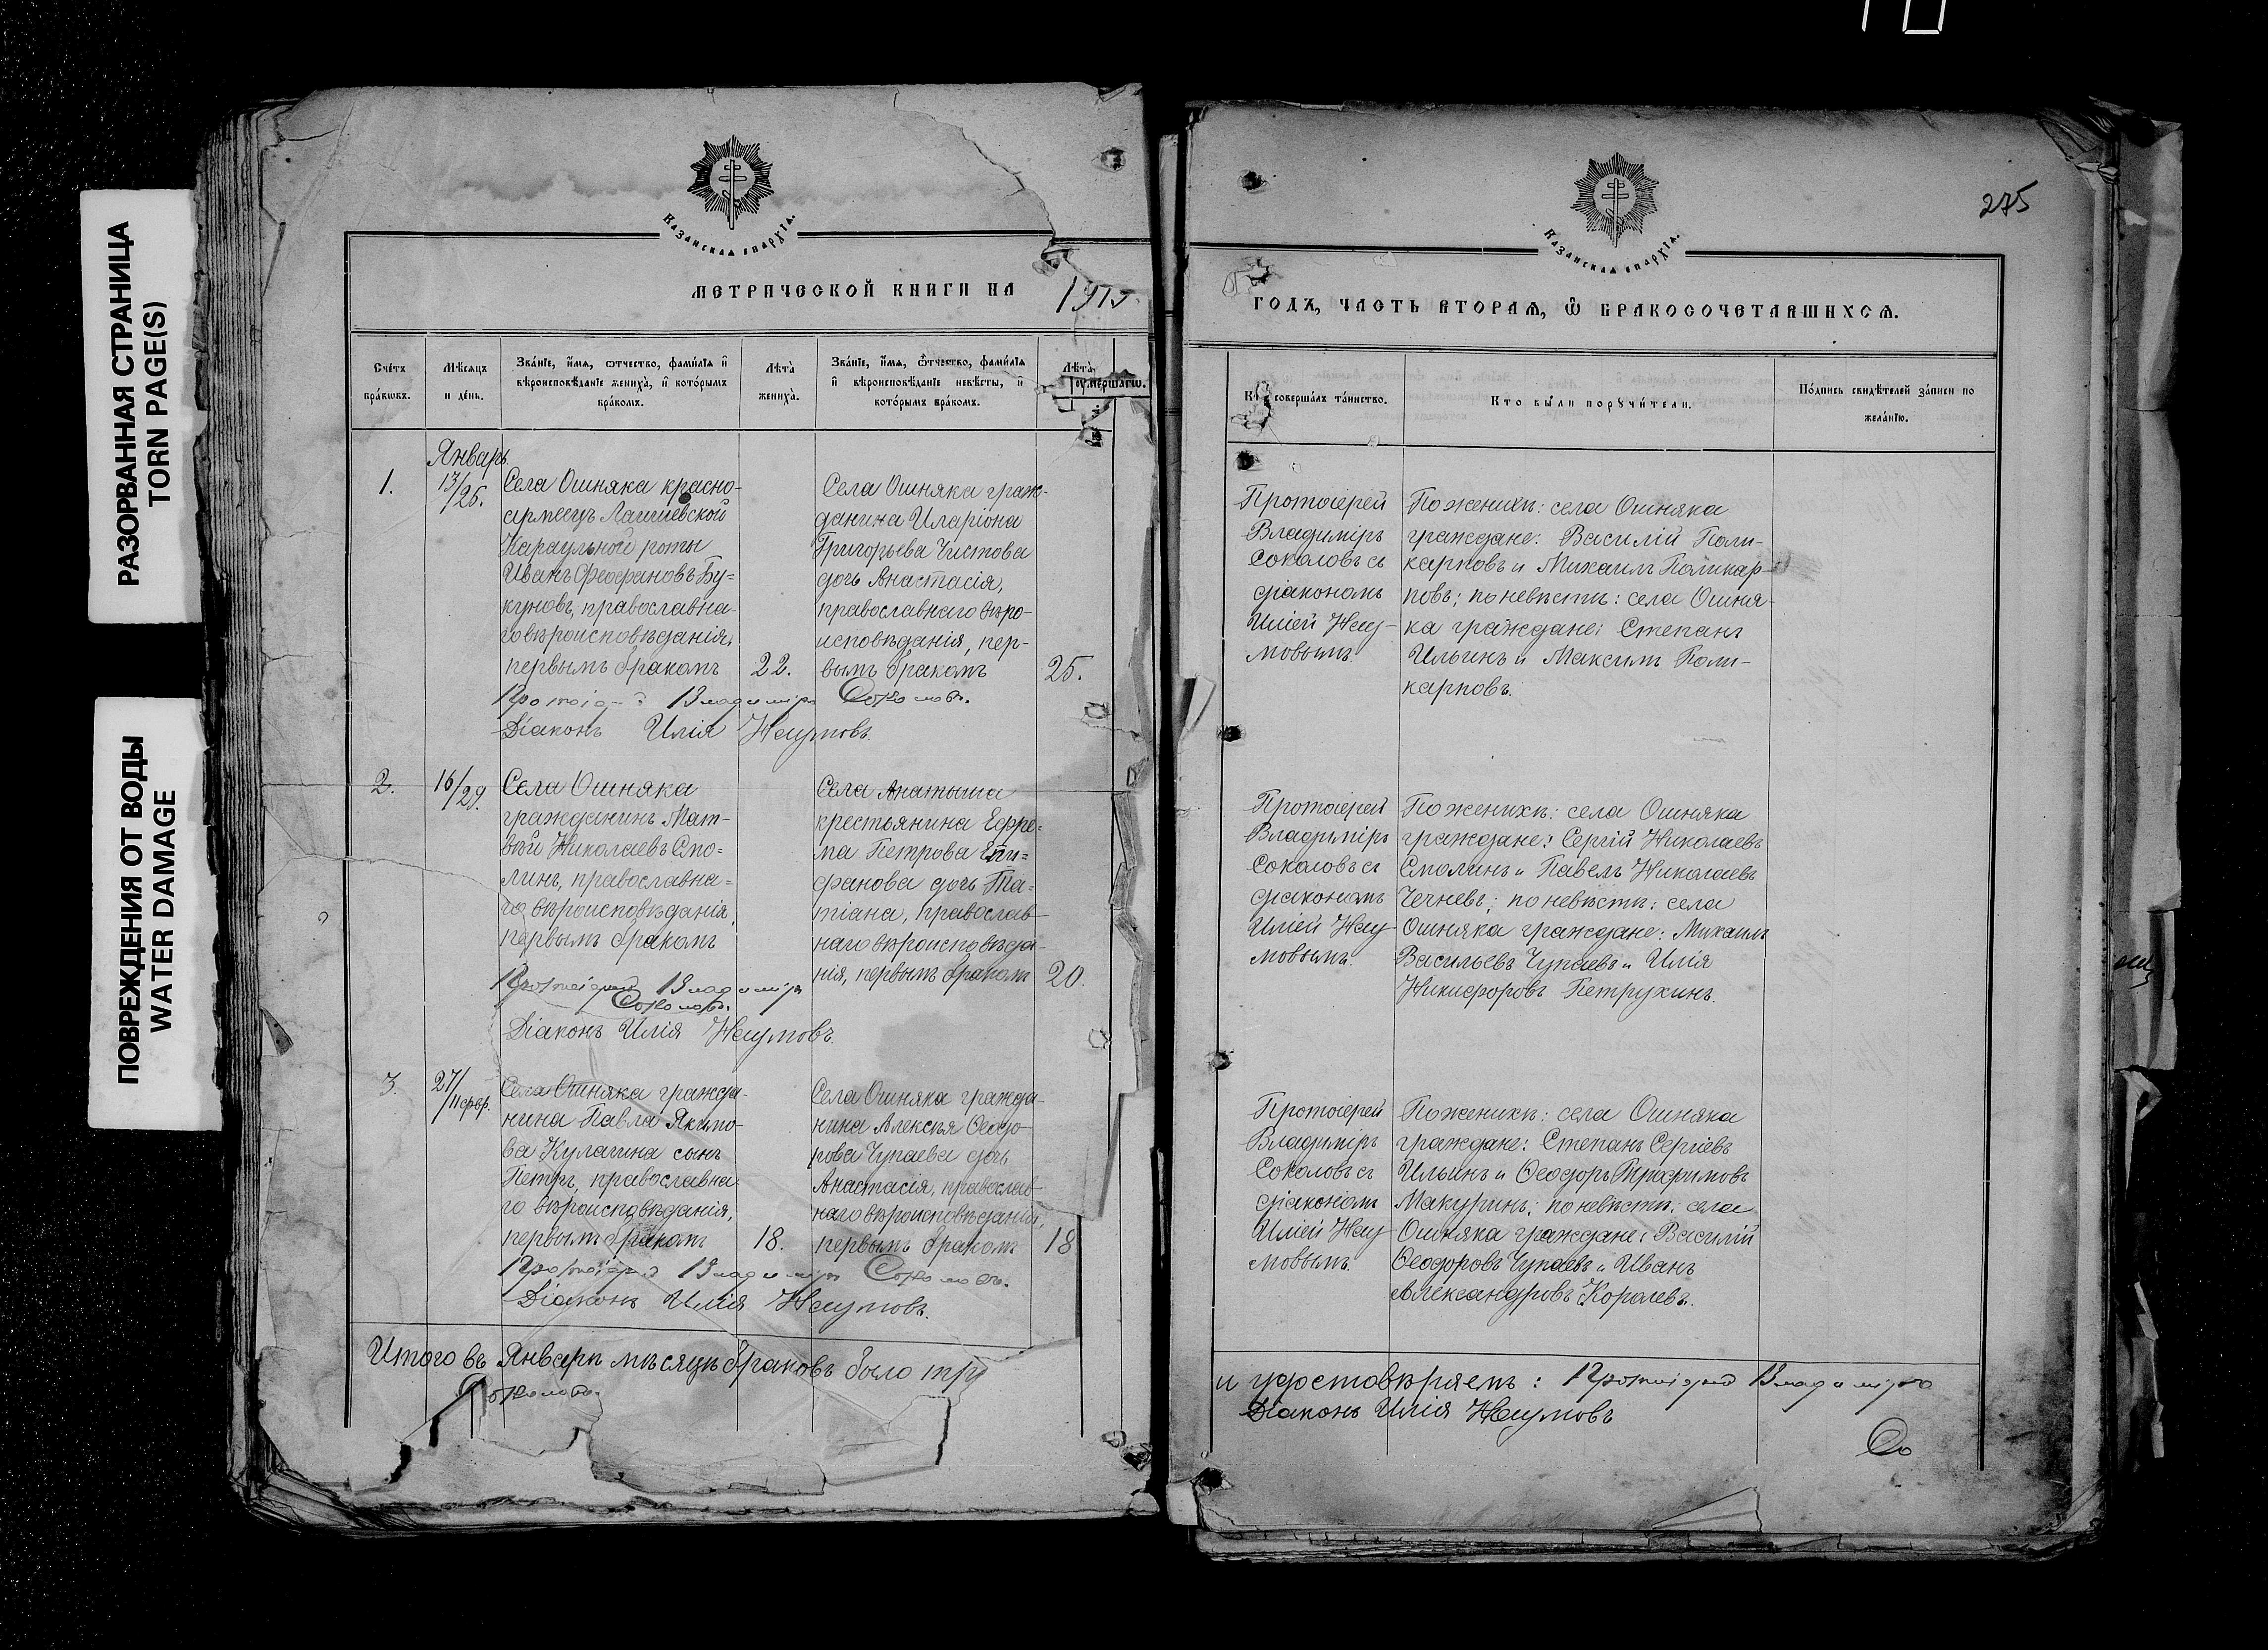 275
РАЗОРВАННАЯ СТРАНИЦА
TORN PAGE(S)
ПОВРЕЖДЕНИЯ ОТ ВОДЫ
WATER DAMAGE
Казанская епархїа.
МЕТРИЧЕСКОЙ КНИГИ НА
Сче́тъ бра́кωвъ.
Мѣ́сяцъ и де́нь.
Зва́нїе, и҆́мя, ѻтчество, фами́лїя и҆
вѣроисповѣ́данїе жениха̀, и҆ кото́рымъ
бра́комъ.
Лѣта̀
жениха̀.
Зва́нїе, и҆́мя, ѻтчество, фами́лїя
и҆ вѣроисповѣ́данїе невѣ́сты, и҆
кото́рымъ бра́комъ.
Лѣта̀
оумершагω.
Январь
1.
13/26.
Села Ошняка красно-
армеецъ Лаишевской
Караульной роты
Иванъ Феофановъ Бу=
куновъ, православна-
го вѣроисповѣданія,
первымъ бракомъ
22.
Села Ошняка граж-
данина Иларіона
Григорьева Чистова
дочь Анастасія,
православнаго вѣро-
исповѣданія, пер-
вымъ бракомъ
25.
Владиміръ Соколовъ.
Діаконъ Илія Наумовъ.
2.
16/29.
Села Ошняка
гражданинъ Мат-
вѣй Николаевъ Смо=
линъ, православна=
го вѣроисповѣданія,
первымъ бракомъ
Села
крестьянина Ефре=
ма Петрова Епи=
фанова дочь Та=
тіана, православ-
наго вѣроисповѣда-
нія, первымъ бракомъ
20.
Протоіерей Владиміръ
Соколовъ.
Діаконъ Илія Наумовъ.
3.
27/11 февр.
Села Ошняка гражда-
нина Павла Якимо-
ва Кулагина сынъ
Петръ, православна
го вѣроисповѣданія,
первымъ бракомъ
18.
Села Ошняка гражда-
нина Алексѣя Ѳеодо-
рова Чупаева дочь
Анастасія, православ-
наго вѣроисповѣданія,
первымъ бракомъ
18
Протоіерей Владиміръ Соколовъ.
Діаконъ Илія Наумовъ.
Итого въ Январѣ мѣсяцѣ браковъ было три
Соколовъ.
Казанская епархїа.
ГОДЪ, ЧАСТЬ ВТОРАѦ, Ѽ БРАКОСОЧЕТАВШИХСѦ.
Кто соверша́лъ та́инство.
Кто бы́ли порꙋчи́тели.
По́дпись свидѣ́телей за́писи по
жела́нїю.
Протоіерей
Владиміръ
Соколовъ съ
діакономъ
Иліей Нау-
мовымъ.
По женихѣ: села Ошняка
граждане: Василій Поли-
карповъ и Михаилъ Поликар-
повъ; по невѣстѣ: села Ошня-
ка граждане: Степанъ
Ильинъ и Максимъ Поли-
карповъ.
Протоіерей
Владиміръ
Соколовъ съ
діакономъ
Иліей Нау-
мовымъ.
По женихѣ: села Ошняка
граждане: Сергій Николаевъ
Смолинъ и Павелъ Николаевъ
Чечневъ; по невѣстѣ: села
Ошняка граждане: Михаилъ
Васильевъ Чупаевъ и Илія
Никифоровъ Петрухинъ.
Протоіерей
Владиміръ
Соколовъ съ
діакономъ
Иліей Нау-
мовымъ.
По женихѣ: села Ошняка
граждане: Степанъ Сергіевъ
Ильинъ и Ѳеодоръ Трофимовъ
Макуринъ; по невѣстѣ: села
Ошняка граждане: Василій
Ѳеодоровъ Чупаевъ и Иванъ
Александровъ Королевъ.
и удостовѣряемъ: Протоіерей Владиміръ
Діаконъ Илія Наумовъ
Со